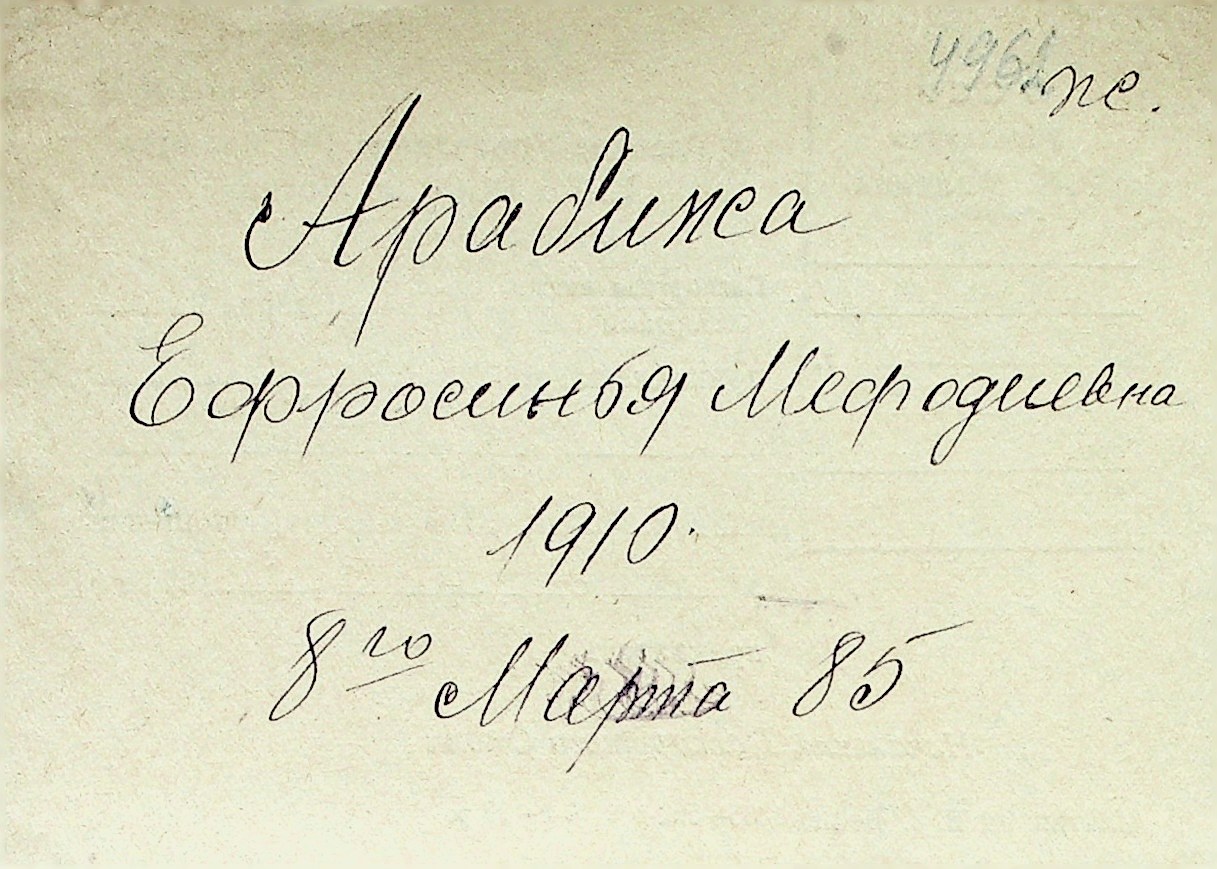 ж.
Арабижа
Ефросинья Мефодиевна
1910.
8го Марта 85